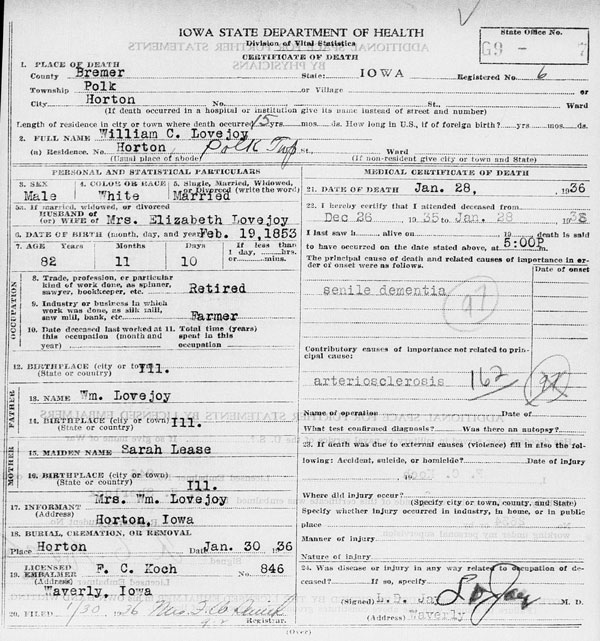 IOWA STATE DEPARTMENT OF HEALTH
Division of Vital Statistics
CERTIFICATE OF DEATH
State Office No.
G9 - 7
1. PLACE OF DEATH
County Bremer State: IOWA Registered No. 6
Township Polk or Village
City Horton No. St. Ward
(If death occurred in a hospital or institution give its name instead of street and number)
Length of residence in city or town where death occurred 15 yrs. mos. ds. How long in U.S., if of foreign birth? yrs. mos. ds.
2. FULL NAME William C. Lovejoy
(a) Residence. No. Horton Polk Twp St., Ward
(Usual place of abode) (If non-resident give city or town and State)
PERSONAL AND STATISTICAL PARTICULARS
3. SEX Male
4. COLOR OR RACE White
5. Single, Married, Widowed, or Divorced (write the word) Married
5a. If married, widowed, or divorced
HUSBAND of
(or) WIFE of Mrs. Elizabeth Lovejoy
6. DATE OF BIRTH (month, day, and year) Feb. 19, 1853
7. AGE Years Months Days If less than 1 day, hrs. or mins.
82 11 10
OCCUPATION
8. Trade, profession, or particular kind of work done, as spinner, sawyer, bookkeeper, etc. Retired
9. Industry or business in which work was done, as silk mill, saw mill, bank, etc. Farmer
10. Date deceased last worked at this occupation (month and year)
11. Total time (years) spent in this occupation
12. BIRTHPLACE (city or town) Ill.
(State or country)
FATHER
13. NAME Wm. Lovejoy
14. BIRTHPLACE (city or town) Ill.
(State or country)
MOTHER
15. MAIDEN NAME Sarah Lease
16. BIRTHPLACE (city or town)
(State or country) Ill.
17. INFORMANT Mrs. Wm. Lovejoy
(Address) Horton, Iowa
18. BURIAL, CREMATION, OR REMOVAL
Place Horton Date Jan. 30 1936
19. LICENSED EMBALMER F. C. Koch 846
Waverly, Iowa
20. FILED 1/30 1936
Registrar.
MEDICAL CERTIFICATE OF DEATH
21. DATE OF DEATH Jan. 28, 1936
22. I hereby certify that I attended deceased from
Dec 26 1935 to Jan. 28 1936
I last saw h alive on 19 death is said
to have occurred on the date stated above, at 5:00P m.
The principal cause of death and related causes of importance in order of onset were as follows.
Date of onset
senile dementia
97
Contributory causes of importance not related to principal cause:
arteriosclerosis 162 97
Name of operation Date of
What test confirmed diagnosis? Was there an autopsy?
23. If death was due to external causes (violence) fill in also the following:
Accident, suicide, or homicide? Date of injury
19
Where did injury occur?
(Specify city or town, county, and State)
Specify whether injury occurred in industry, in home, or in public place
Manner of injury
Nature of injury
24. Was disease or injury in any way related to occupation of deceased? If so, specify
(Signed) L.D. Jay M. D.
(Address) Waverly
(Over)